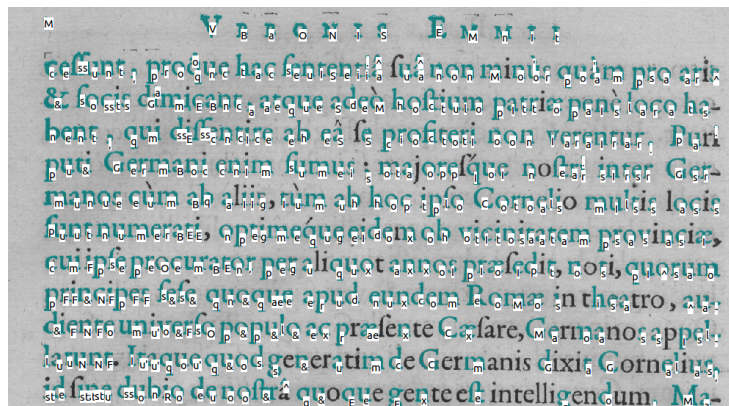 UBBONIS EMMII
cessant, proque hac sententiâ suâ non minùs quàm pro aris
& focis dimicant, atque adeò hostium patriæ penè loco ha-
bent, qui dissentire ab eâ se profiteri non verentur. Puri
puti Germani enim sumus; majoresq́ue nostri inter Ger-
manos cùm ab aliis, tùm ab hoc ipso Cornelio multis locis
sunt numerati, optimeq́ue eidem ob vicinitatem provinciæ,
cui ipse procurator per aliquot annos præsedit, noti, quorum
principes sese quoque apud eundem Romæ in theatro, au-
diente universo populo ac præsente Cæsare, Germanos appel-
larunt. Itaque quod generatim de Germanis dixit Cornelius,
id sine dubio de nostrâ quoque gente est intelligendum. Ma-